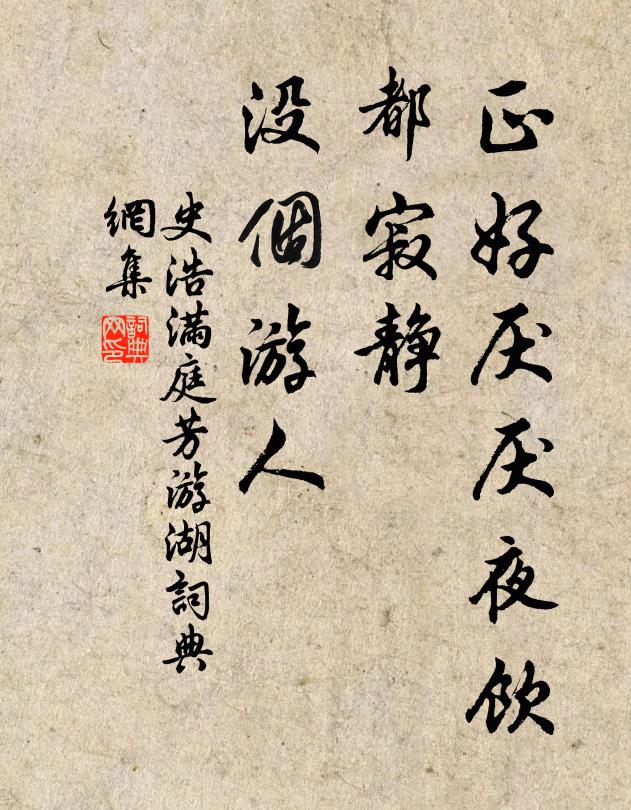 正好厌厌夜饮
都寂静
没個游人
史浩满庭芳游湖詞典
網集
詞典网印